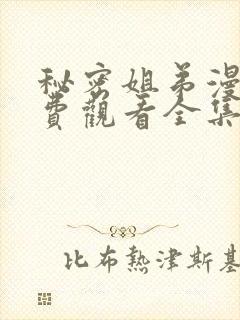 秘密姐弟漫
費觀看全集
比布熱津斯基